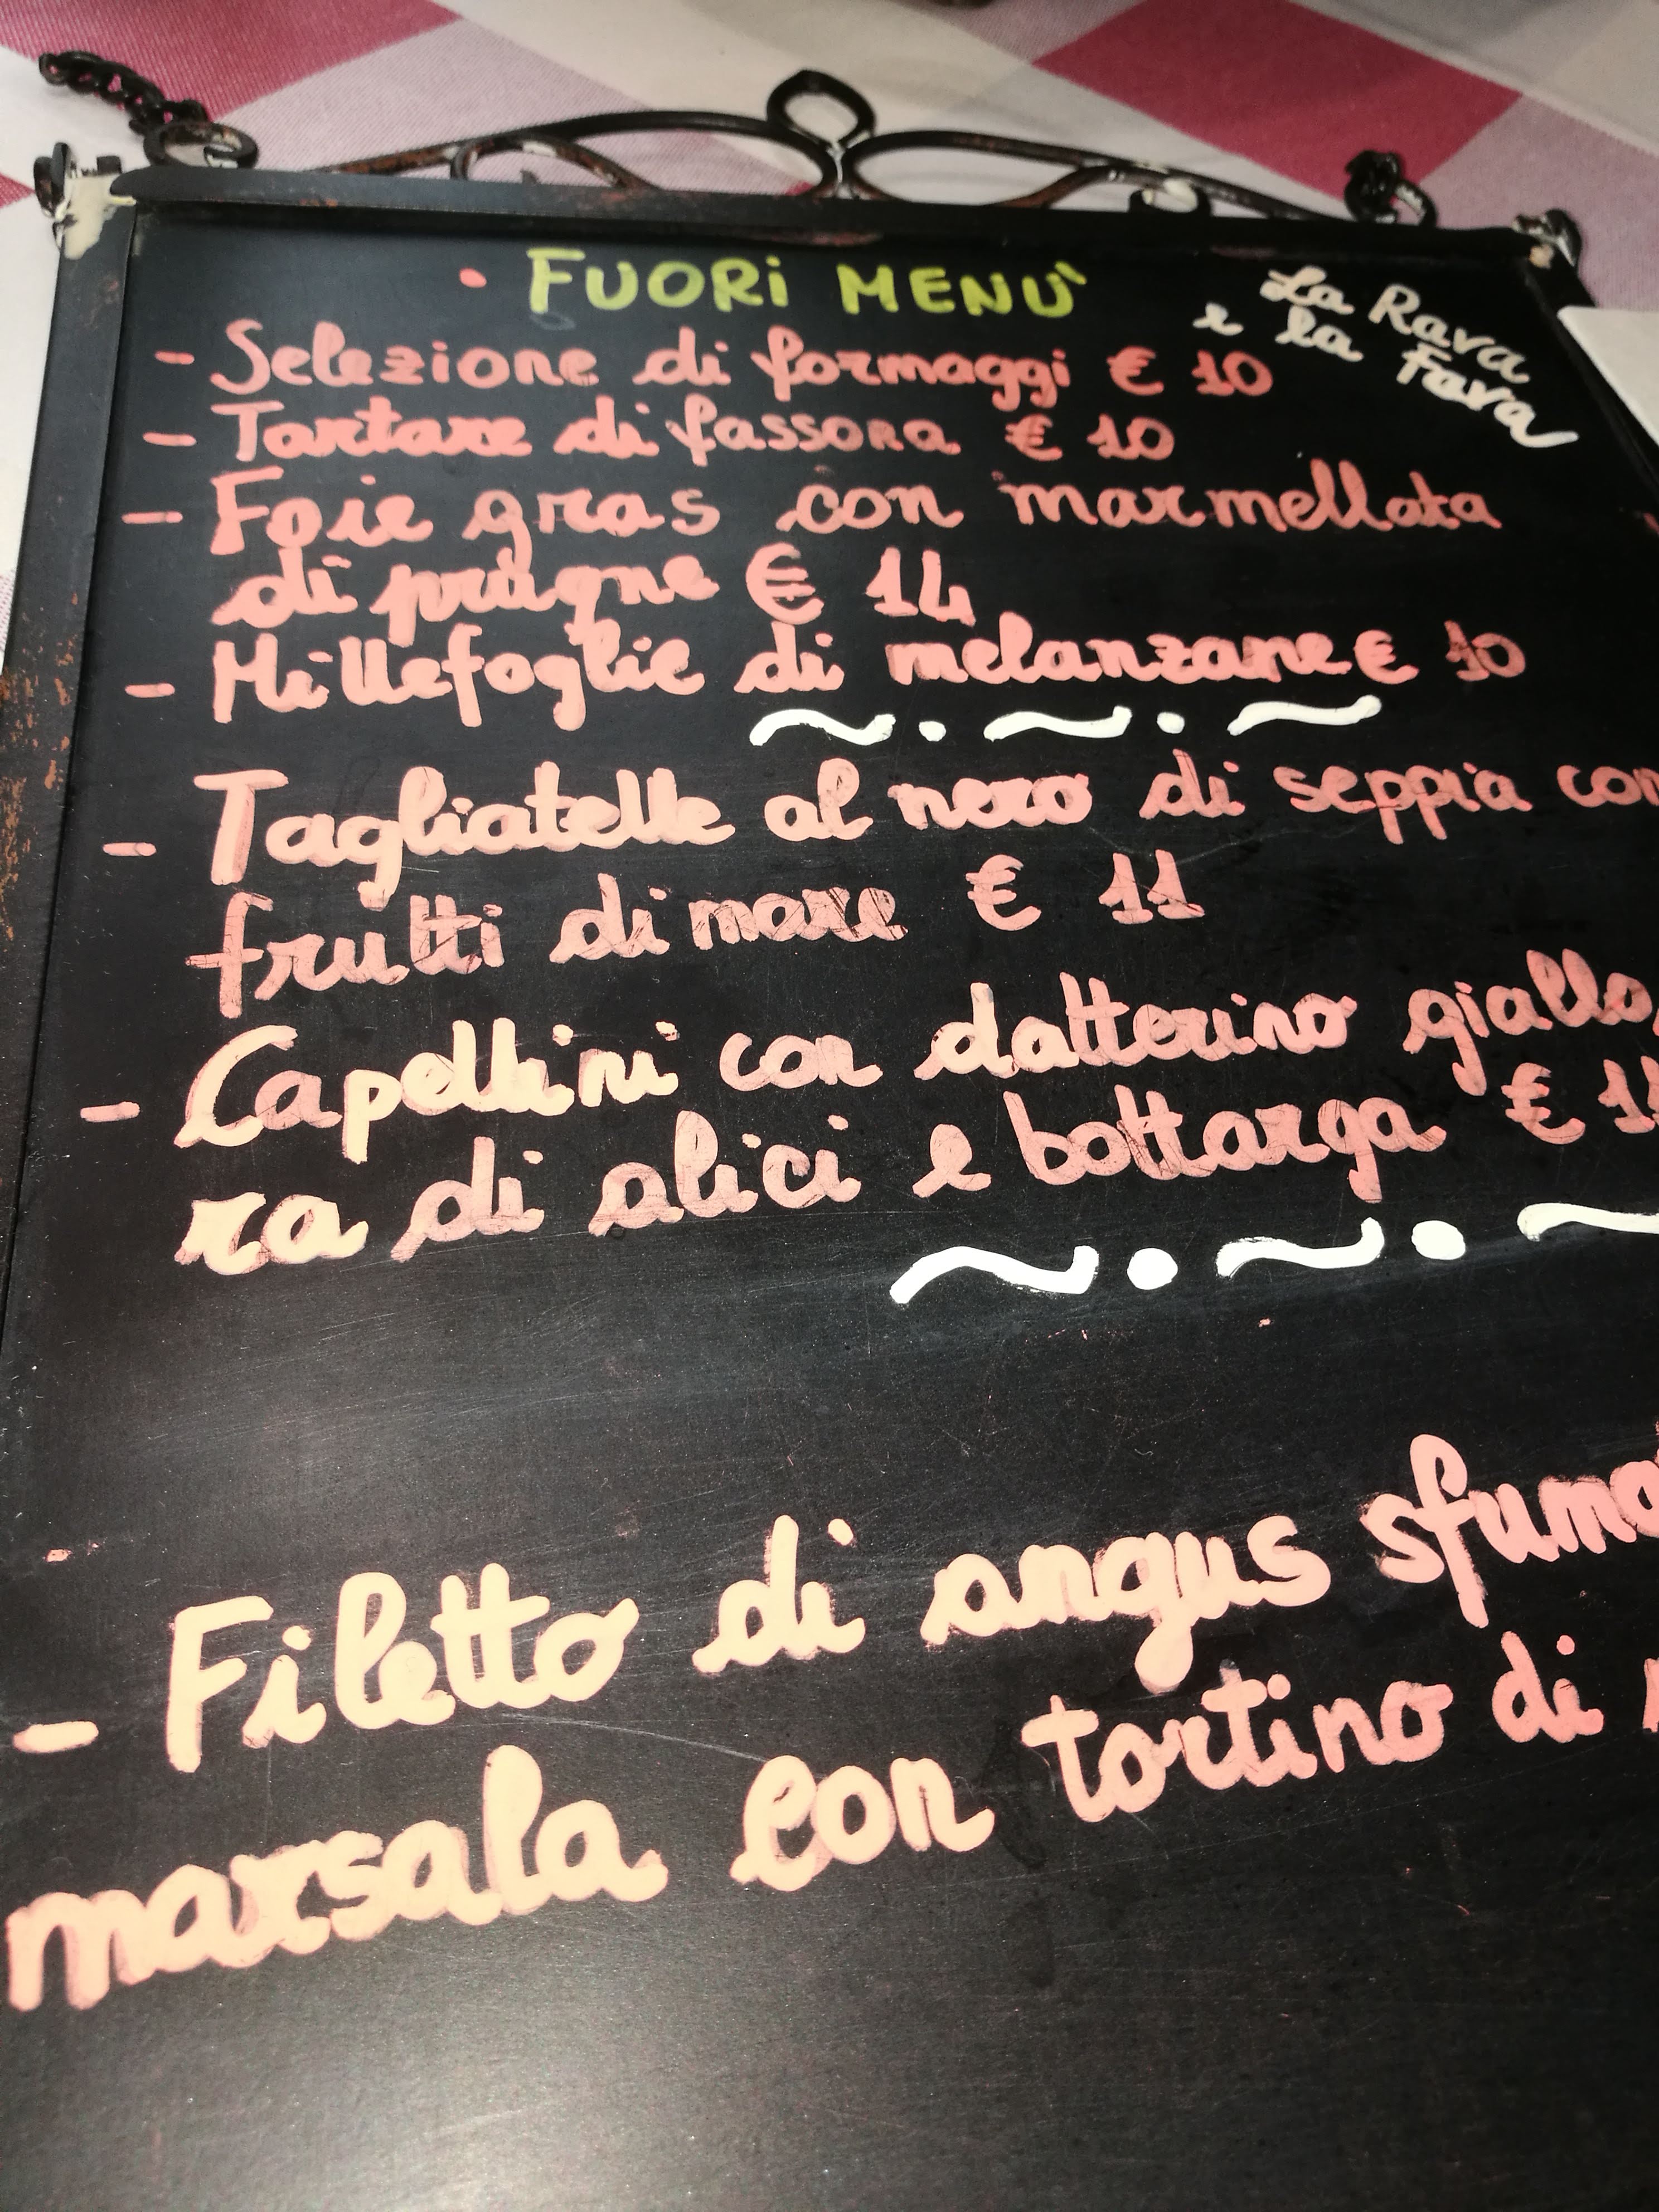 • FUORI MENU'
La Rava
e la Fava
- Selezione di formaggi € 10
- Tartare di fassona € 10
- Foie gras con marmellata
di prugne € 14
- Millefoglie di melanzane € 10
~ . ~ . ~
- Tagliatelle al nero di seppia con
frutti di mare € 11
- Capellini con datterino giallo,
ra di alici e bottarga €
~ . ~ . ~
- Filetto di angus
marsala con tortino di